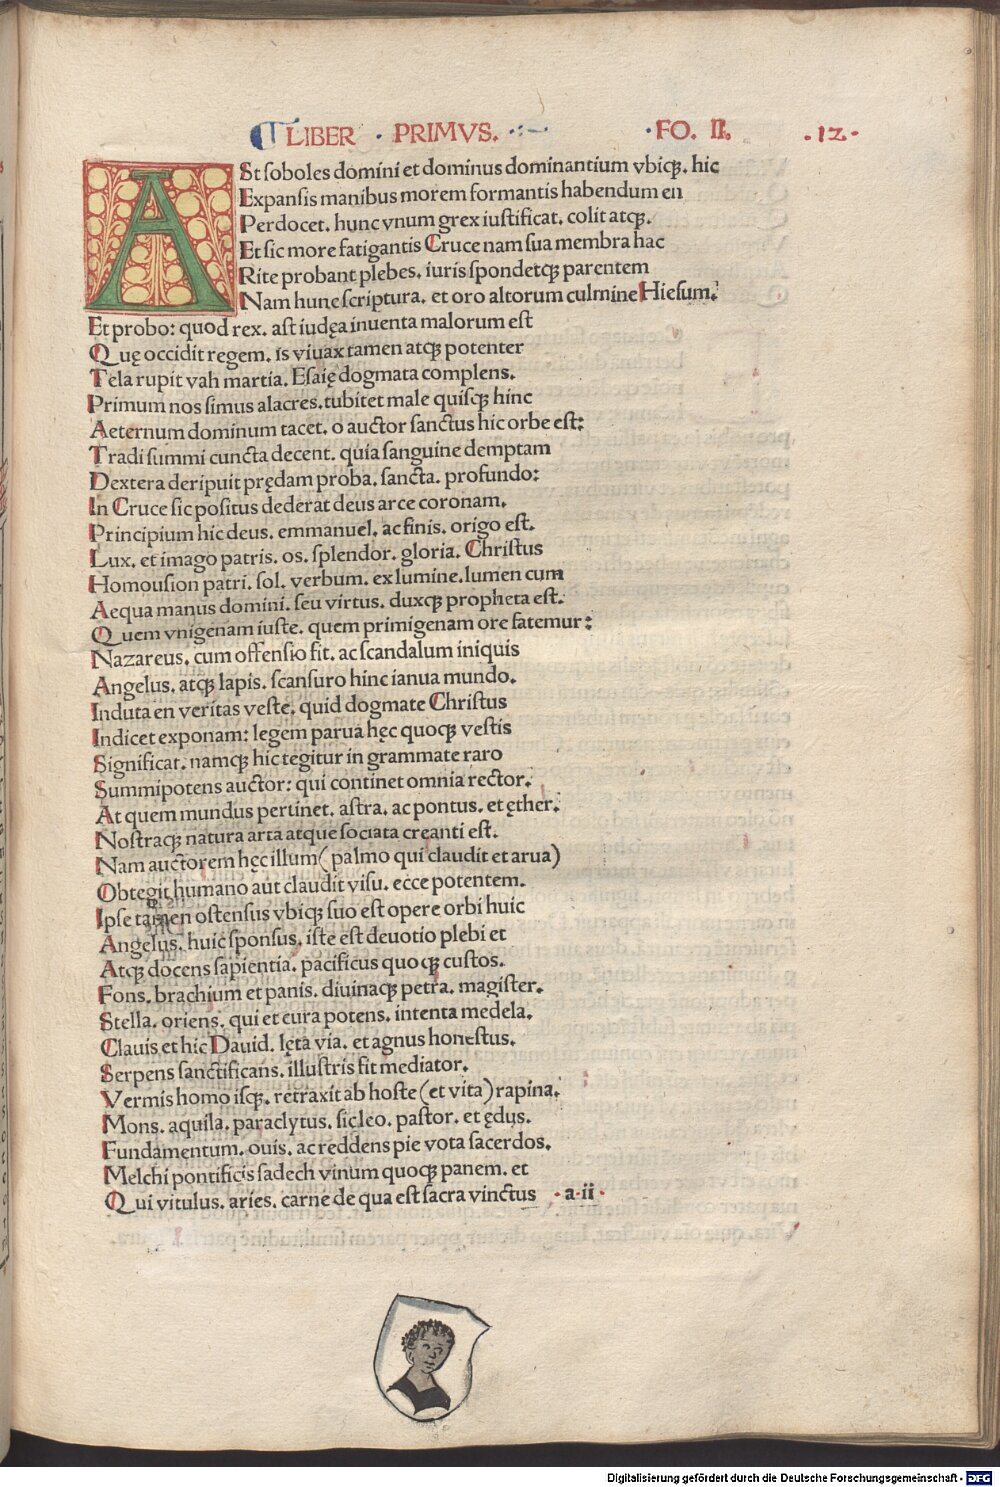 LIBER · PRIMVS. · FO. II. · 12 ·
ASt soboles domini et dominus dominantium vbiqꝫ. hic
Expansis manibus morem formantis habendum en
Perdocet. hunc vnum grex iustificat. colit atqꝫ.
Et sic more fatigantis Cruce nam sua membra hac
Rite probant plebes. iuris spondetqꝫ parentem
Nam hunc scriptura. et oro altorum culmine Hiesum.
Et probo: quod rex. ast iudęa inuenta malorum est
Quę occidit regem. is viuax tamen atqꝫ potenter
Tela rupit vah martia. Esaię dogmata complens.
Primum nos simus alacres. tubitet male quisqꝫ hinc
Aeternum dominum tacet. o auctor sanctus hic orbe est:
Tradi summi cuncta decent. quia sanguine demptam
Dextera deripuit prędam proba. sancta. profundo:
In Cruce sic positus dederat deus arce coronam.
Principium hic deus. emmanuel. ac finis. origo est.
Lux. et imago patris. os. splendor. gloria. Christus
Homousion patri. sol. verbum. ex lumine. lumen cum
Aequa manus domini. seu virtus. duxqꝫ propheta est.
Quem vnigenam iuste. quem primigenam ore fatemur:
Nazareus. cum offensio fit. ac scandalum iniquis
Angelus. atqꝫ lapis. scansuro hinc ianua mundo.
Induta en veritas veste. quid dogmate Christus
Indicet exponam: legem parua hęc quoqꝫ vestis
Significat. namqꝫ hic tegitur in grammate raro
Summipotens auctor: qui continet omnia rector.
At quem mundus pertinet. astra. ac pontus. et ęther.
Nostraqꝫ natura arta atque sociata creanti est.
Nam auctorem hęc illum (palmo qui claudit et arua)
Obtegit humano aut claudit visu. ecce potentem.
Ipse tamen ostensus vbiqꝫ suo est opere orbi huic
Angelus. huic sponsus. iste est deuotio plebi et
Atqꝫ docens sapientia. pacificus quoqꝫ custos.
Fons. brachium et panis. diuinaqꝫ petra. magister.
Stella. oriens. qui et cura potens. intenta medela.
Clauis et hic Dauid. lęta via. et agnus honestus.
Serpens sanctificans. illustris fit mediator.
Vermis homo isqꝫ. retraxit ab hoste (et vita) rapina.
Mons. aquila. paraclytus. sic leo. pastor. et ędus.
Fundamentum. ouis. ac reddens pie vota sacerdos.
Melchi pontificis sadech vinum quoqꝫ panem. et
Qui vitulus. aries. carne de qua est sacra vinctus · a · ii ·
Digitalisierung gefördert durch die Deutsche Forschungsgemeinschaft - DFG